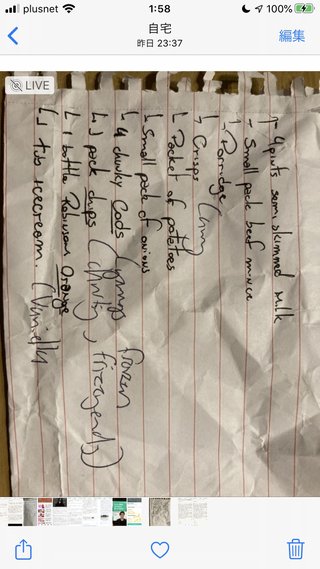 plusnet 1:58 100%
自宅
昨日 23:37
編集
LIVE
4 pints semi skimmed milk
Small pack beef mince
Porridge
Crisps
Packet of potatoes
Small pack of onions
4 chunky Cods frozen
1 pack chips
1 bottle Robinson Orange
1 tub icecream. (Vanilla